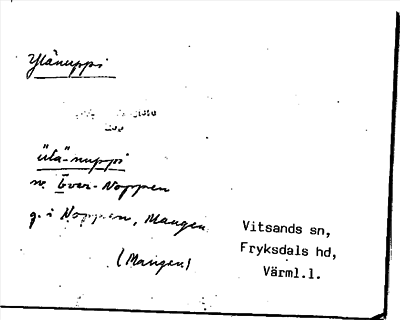 Ylänuppi
"ülä"-nuppi
sv. Över-Noppen
g. i Noppen, Mangen
(Mangen)
Vitsands sn,
Fryksdals hd,
Värml.l.